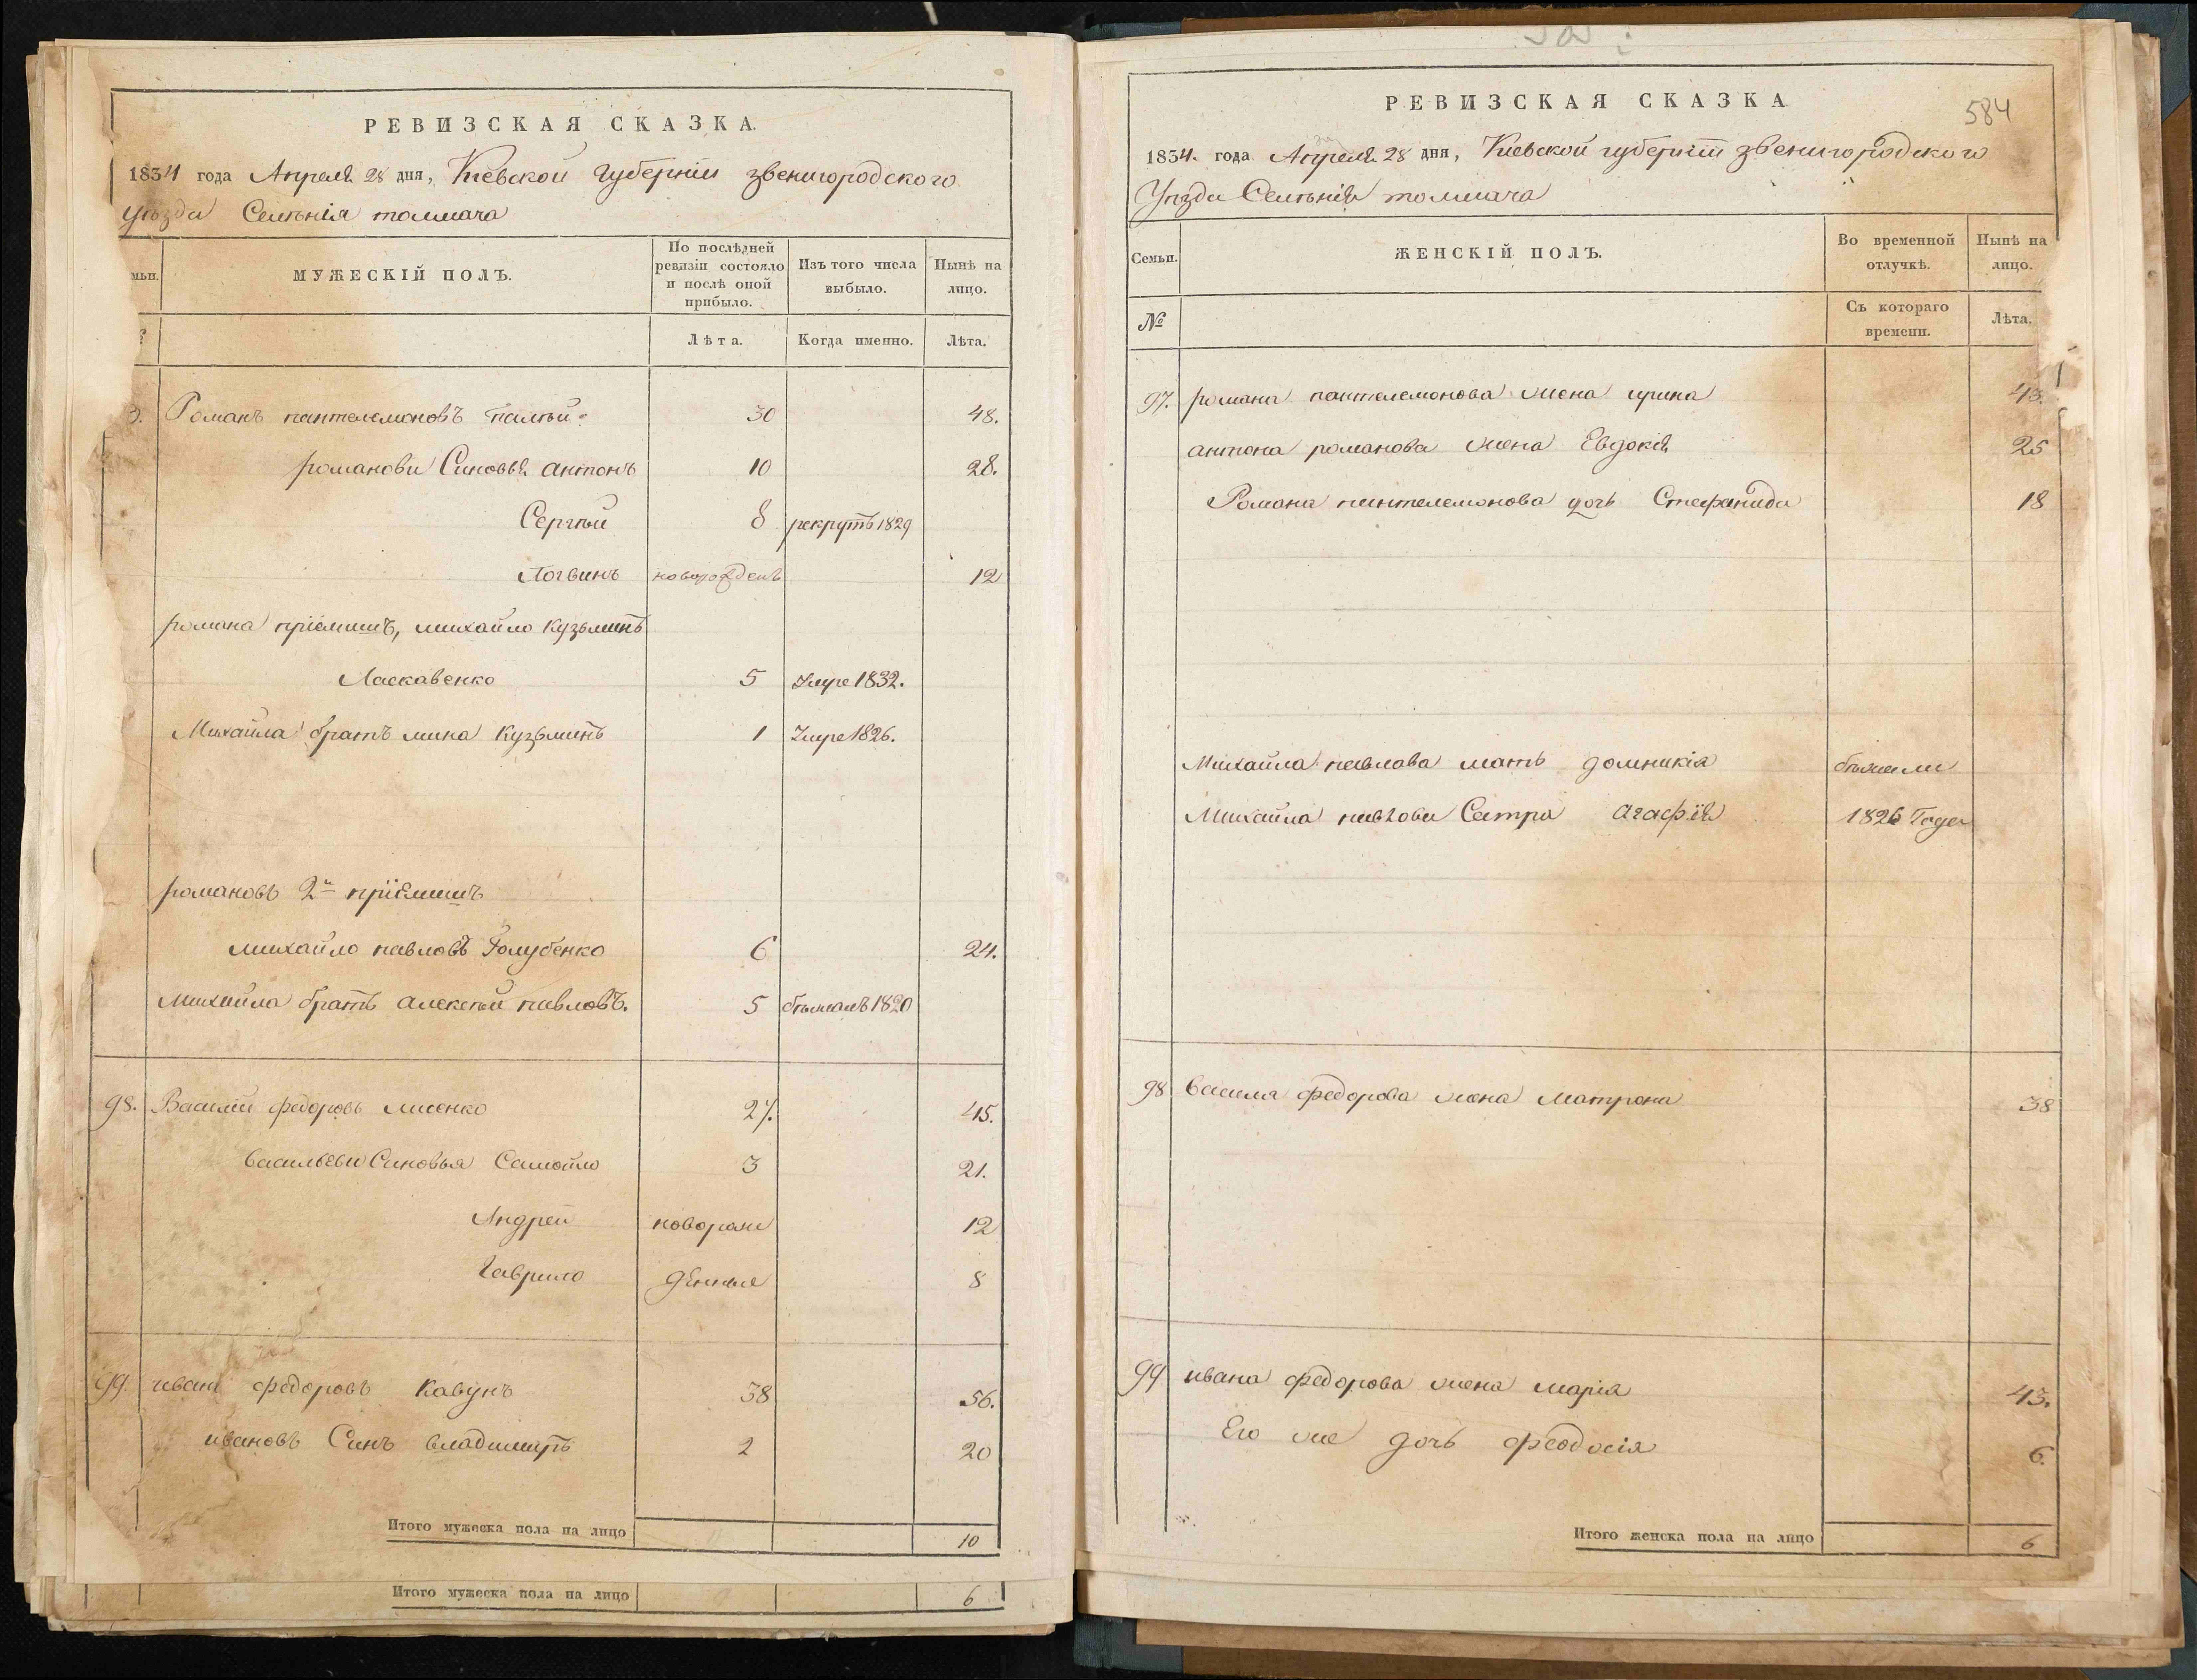 РЕВИЗСКАЯ СКАЗКА.
1834 года Апреля 28 дня, Кіевской Губерніи звенигородского
уѣзда Селѣнія толмача
мьи.
МУЖЕСКІЙ ПОЛЪ.
По послѣдней ревизіи состояло и послѣ оной прибыло.
Изъ того числа выбыло.
Нынѣ на лицо.
Лѣта.
Когда именно.
Лѣта.
Романъ пантелемоновъ 30 48.
романови Синовья антонъ 10 28.
Сергѣй 8 рекрутъ 1829
Логвинъ новорожденъ 12
романа пріемишъ, михайло Кузьминъ
Ласкавенко 5 умре 1832.
Михайла братъ мина Кузьминъ 1 умре 1826.
романовъ 2й пріемишъ
михайло павловъ Голубенко 6 24.
Михайла братъ алексѣй павловъ. 5 бѣжалъ 1820
98. Василій федоровъ лисенко 27. 45.
васильеви Синовья Самойло 3 21.
Андрей новорож 12
Гаврило денные 8
99. иванъ федоровъ Кавунъ 38 56.
ивановъ Синъ владимиръ 2 20
Итого мужеска пола на лицо 10
Итого мужеска пола на лицо 6
РЕВИЗСКАЯ СКАЗКА
584
1834. года Апреля 28 дня, Кіевской губерніи звенигородского
Уѣзда Селѣнія толмача
Семьи.
ЖЕНСКІЙ ПОЛЪ.
Во временной отлучкѣ.
Нынѣ на лицо.
№
Съ котораго времени.
Лѣта.
97. романа пантелемонова жена ирина 43.
антона романова жена Евдокія 25
Романа пантелемонова дочь Стефанида 18
Михайла павлова мать домникія бѣжали
Михайла павлова Сестра агафія 1826 Года
98 василя федорова жена матрона 38
99 ивана федорова жена марія 43.
Его же дочь феодосія 6.
Итого женска пола на лицо 6